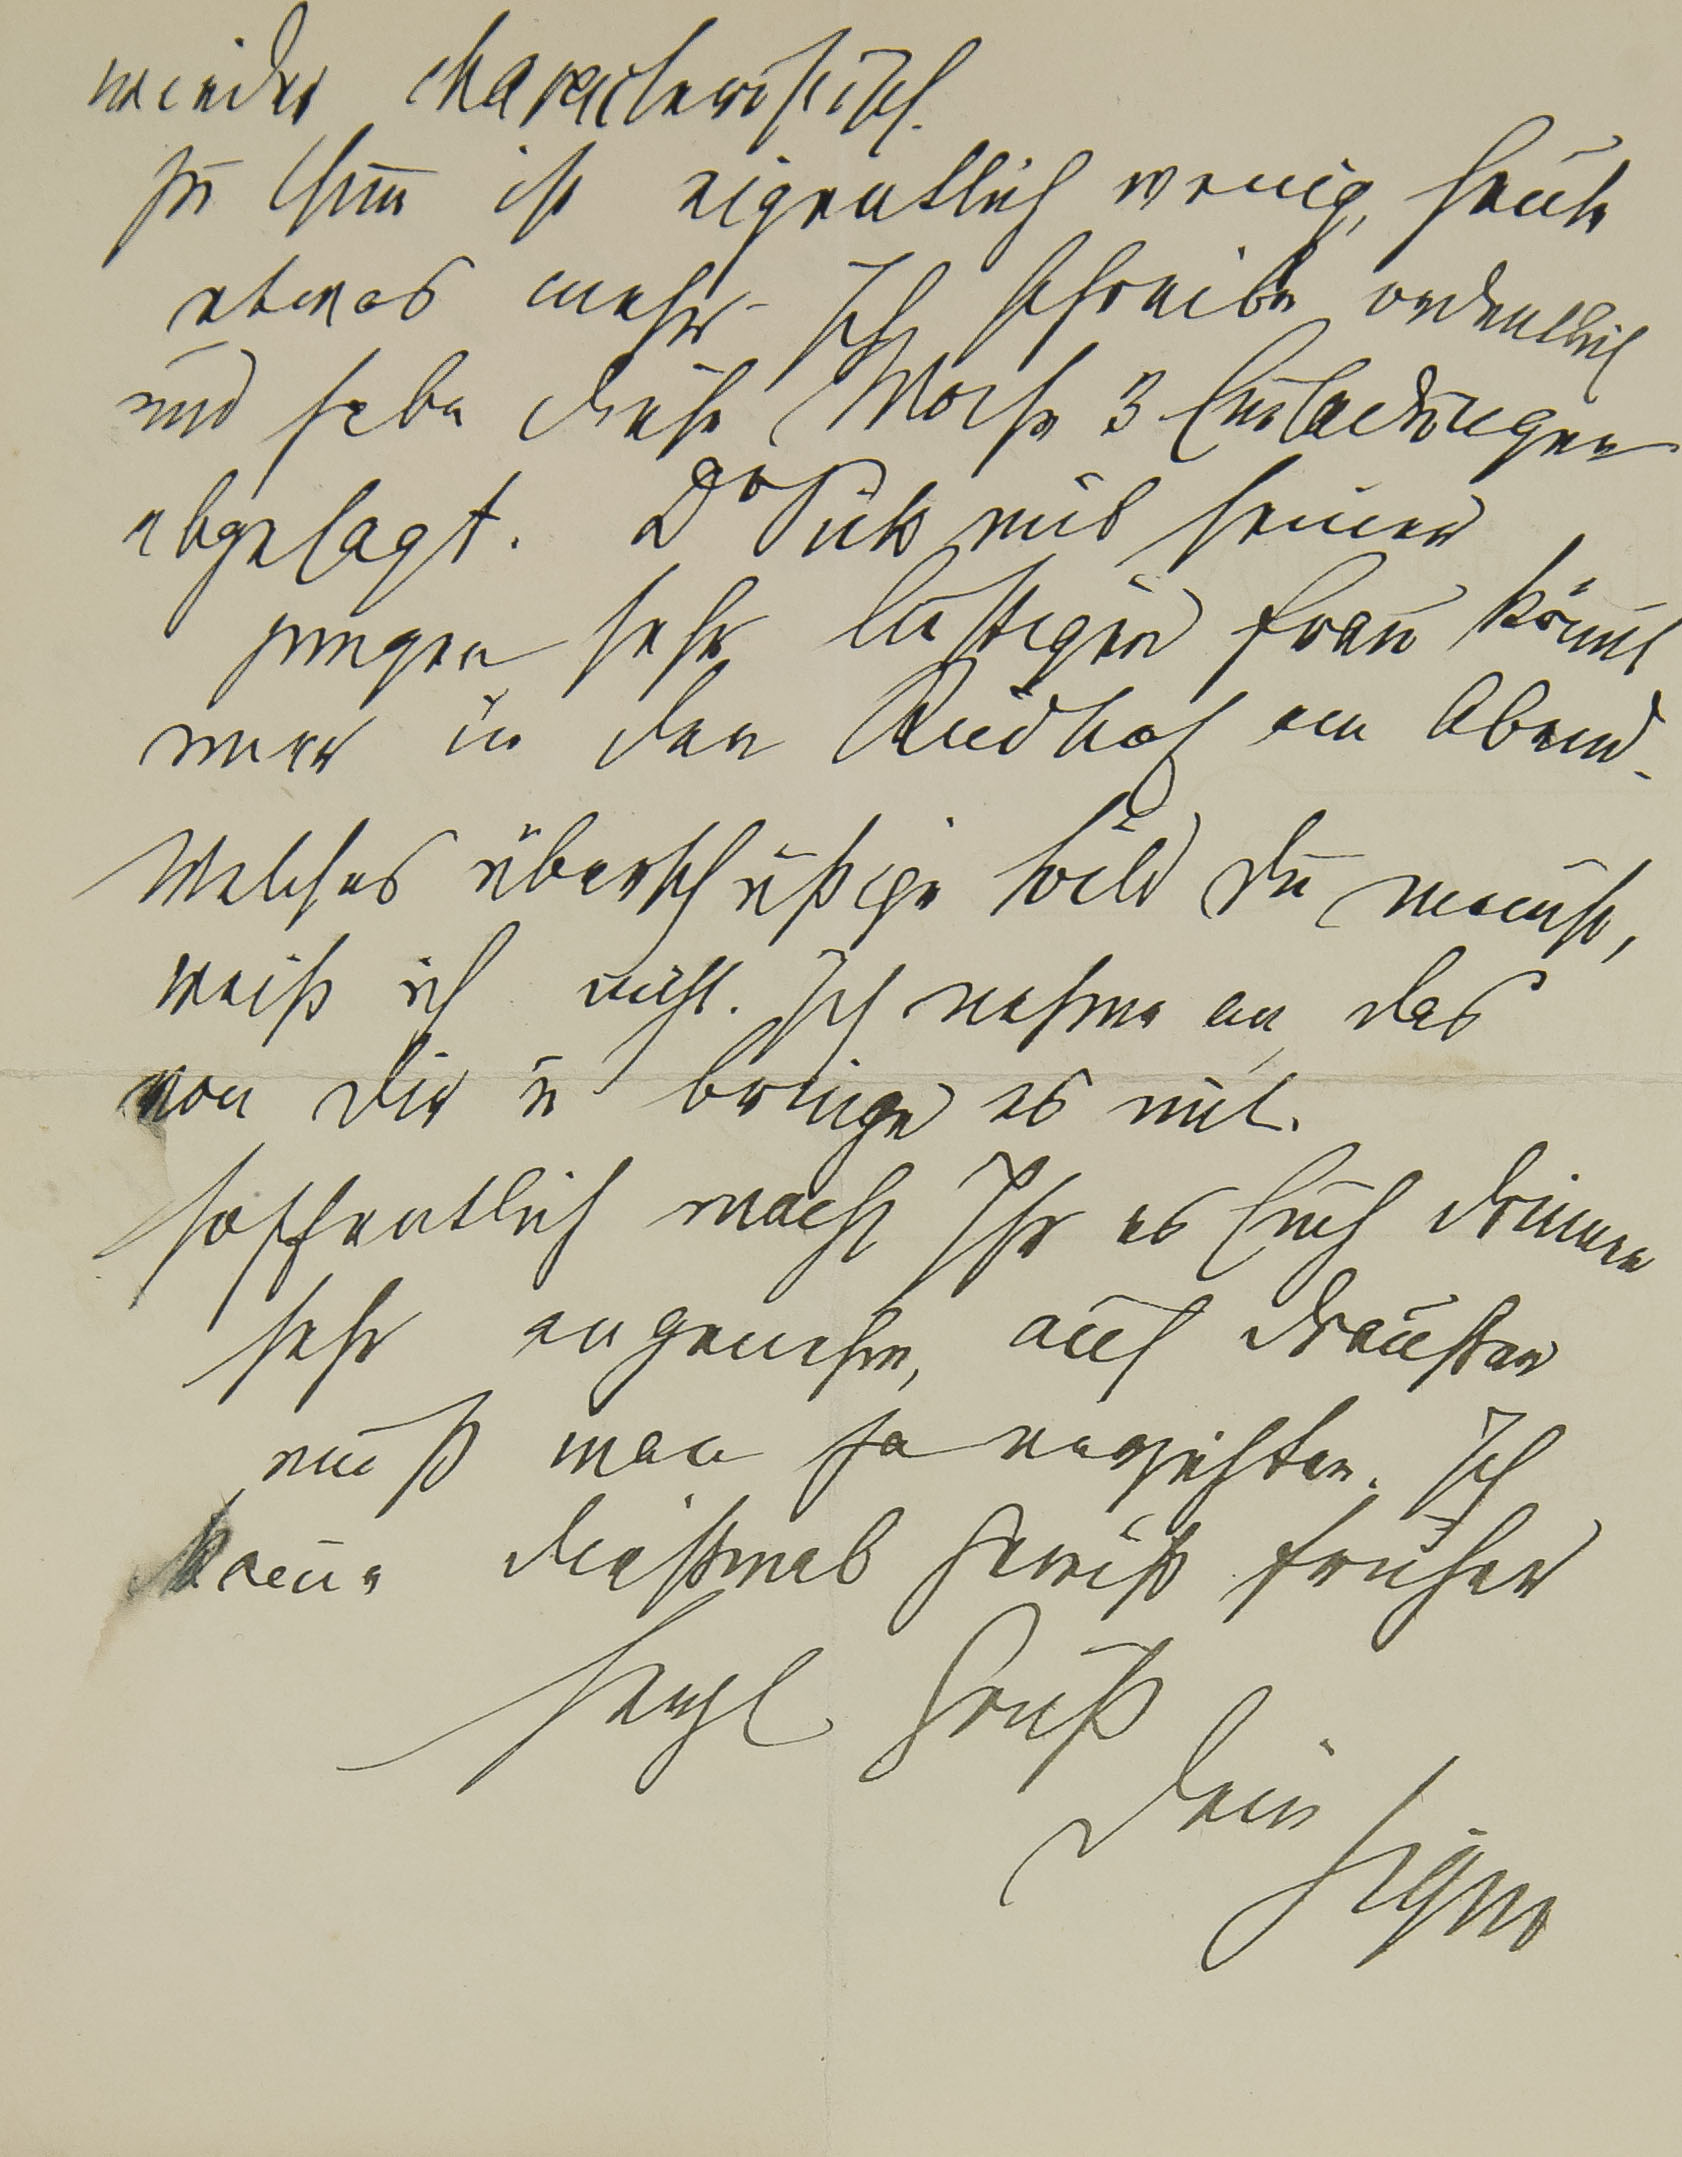 wieder charakteristisch.
Zu thun ist eigentlich wenig, heute
etwas mehr. Ich schreibe ordentlich
und habe diese Woche 3 Einladungen
abgesagt. Dr mit seiner
jungen sehr lustigen Frau kom̅t
immer in den Riedhof am Abend.
Welches überschüßige Bild du meinst,
weiß ich nicht. Ich nehme an das
von dir u bringe es mit.
Hoffentlich macht Ihr es Euch drinnen
sehr angenehm, auf draußen
muß man ja verzichten. Ich
kom̅e dießmal gewiß früher
Herzl Gruß
Dein
Sigm